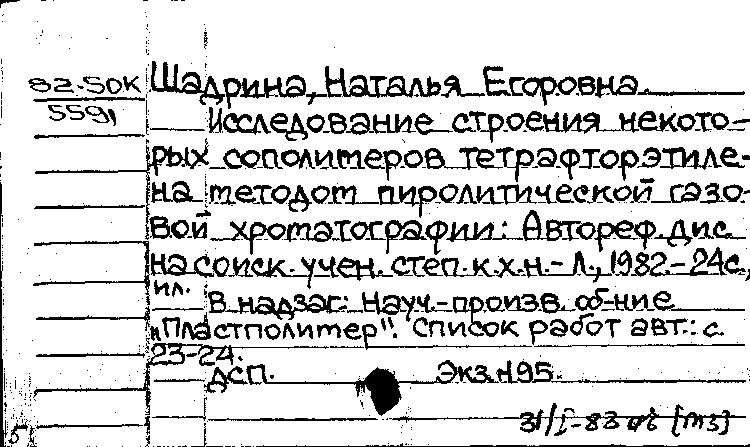 82-50К Шадрина, Наталья Егоровна.
559, Исследование строения некото-
рых сополимеров тетрафторэтиле-
на методом пиролитической газо-
вой хроматографии: Автореф. дис.
на соиск. учен. степ. к.х.н. - Л., 1982.-24с.,
ил.
В надзаг: Науч.-произв. об-ние
„Пластполимер". Список работ авт.: с.
23-24.
ДСП. Экз. №95.
31/I-83
5